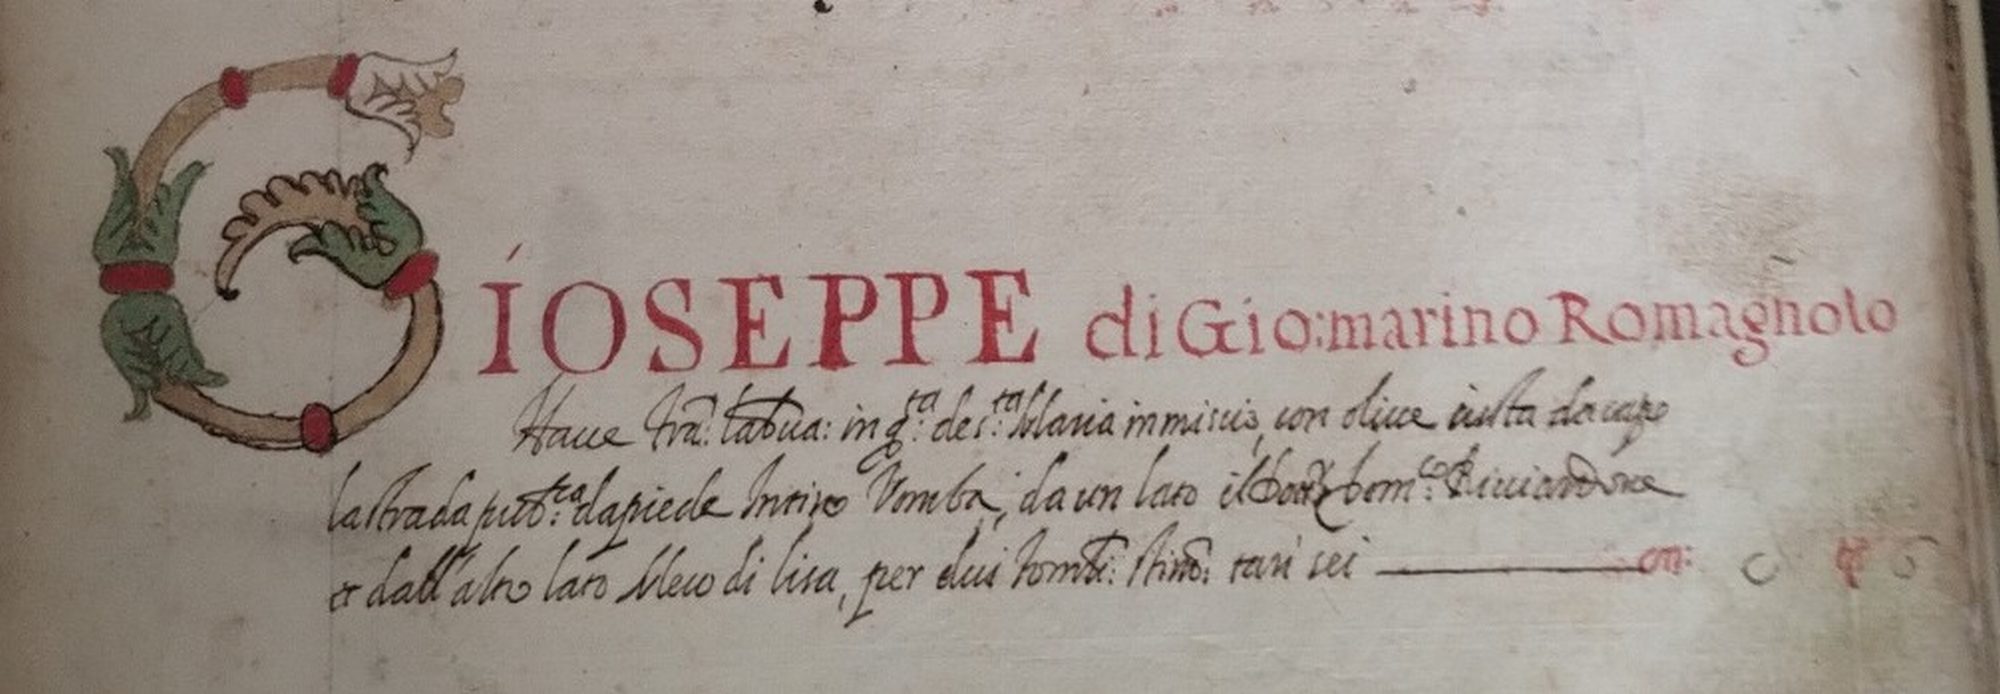 GIOSEPPE di Gio:marino Romagnolo
Haue tra: labua: in q.ta de s.ta Maria in miscis, con oliue iusta da capo
la strada pub.ca da piede Intino Vomba, da un lato il dom.co Ricciardone
et dall'altro lato Meio di lisa, per dui tomb: stim: tari sei on: 0 tt 6